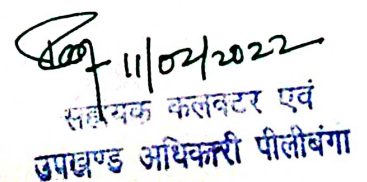 11/02/2022
सहायक कलक्टर एवं
उपखण्ड अधिकारी पीलीबंगा